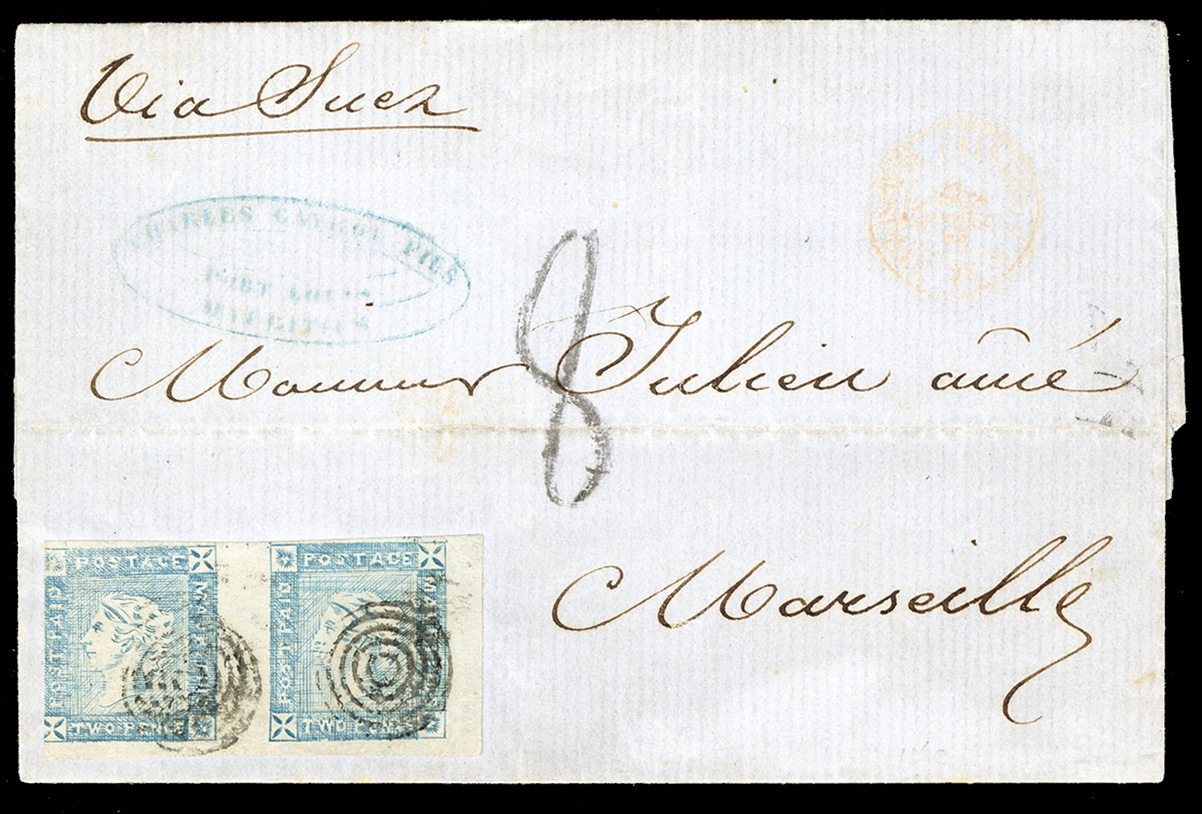 Via Suez
CHARLES FILS
PORT LOUIS
MAURITIUS
8
Monsieur Julien aîné
Marseille
POSTAGE
POST PAID
MAURITIUS
TWO PENCE
POSTAGE
POST PAID
MAURITIUS
TWO PENCE